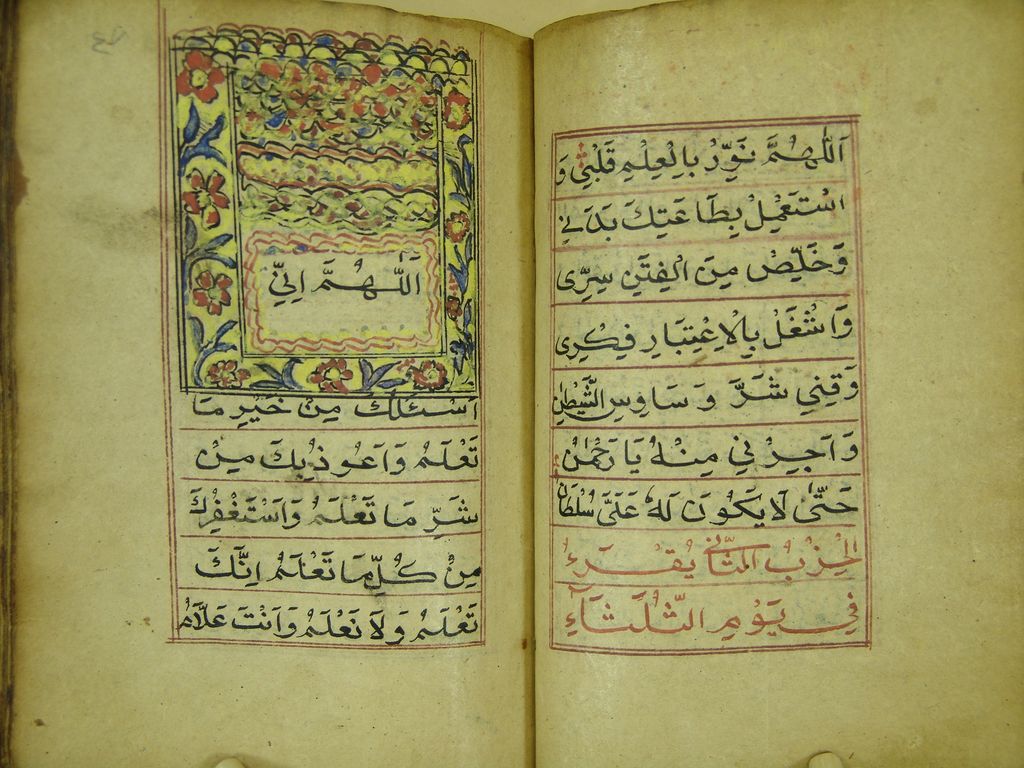 اَللّٰهُمَّ نَوِّرْ بِالْعِلْمِ قَلْبِيْ وَ
اسْتَعْمِلْ بِطَاعَتِكَ بَدَنِي
وَخَلِّصْ مِنَ الْفِتَنِ سِرِّى
وَاشْغَلْ بِالْاِعْتِبَارِ فِكْرِى
وَقِنِي شَرَّ وَسَاوِسِ الشَّيْطٰنِ
وَاَجِرْنِي مِنْهُ يَا رَحْمٰنُ
حَتّٰى لَا يَكُونَ لَهُ عَلَىَّ سُلْطَانٌ
الْحِزْبُ الثَّانِي يُقْرَءُ
فِي يَوْمِ الثُّلَثَاءِ
اَللّٰهُمَّ اِنِّيْ
اَسْئَلُكَ مِنْ خَيْرِ مَا
تَعْلَمُ وَاَعُوذُبِكَ مِنْ
شَرِّ مَا تَعْلَمُ وَاَسْتَغْفِرُكَ
مِنْ كُلِّ مَا تَعْلَمُ اِنَّكَ
تَعْلَمُ وَلَا نَعْلَمُ وَاَنْتَ عَلَّامُ